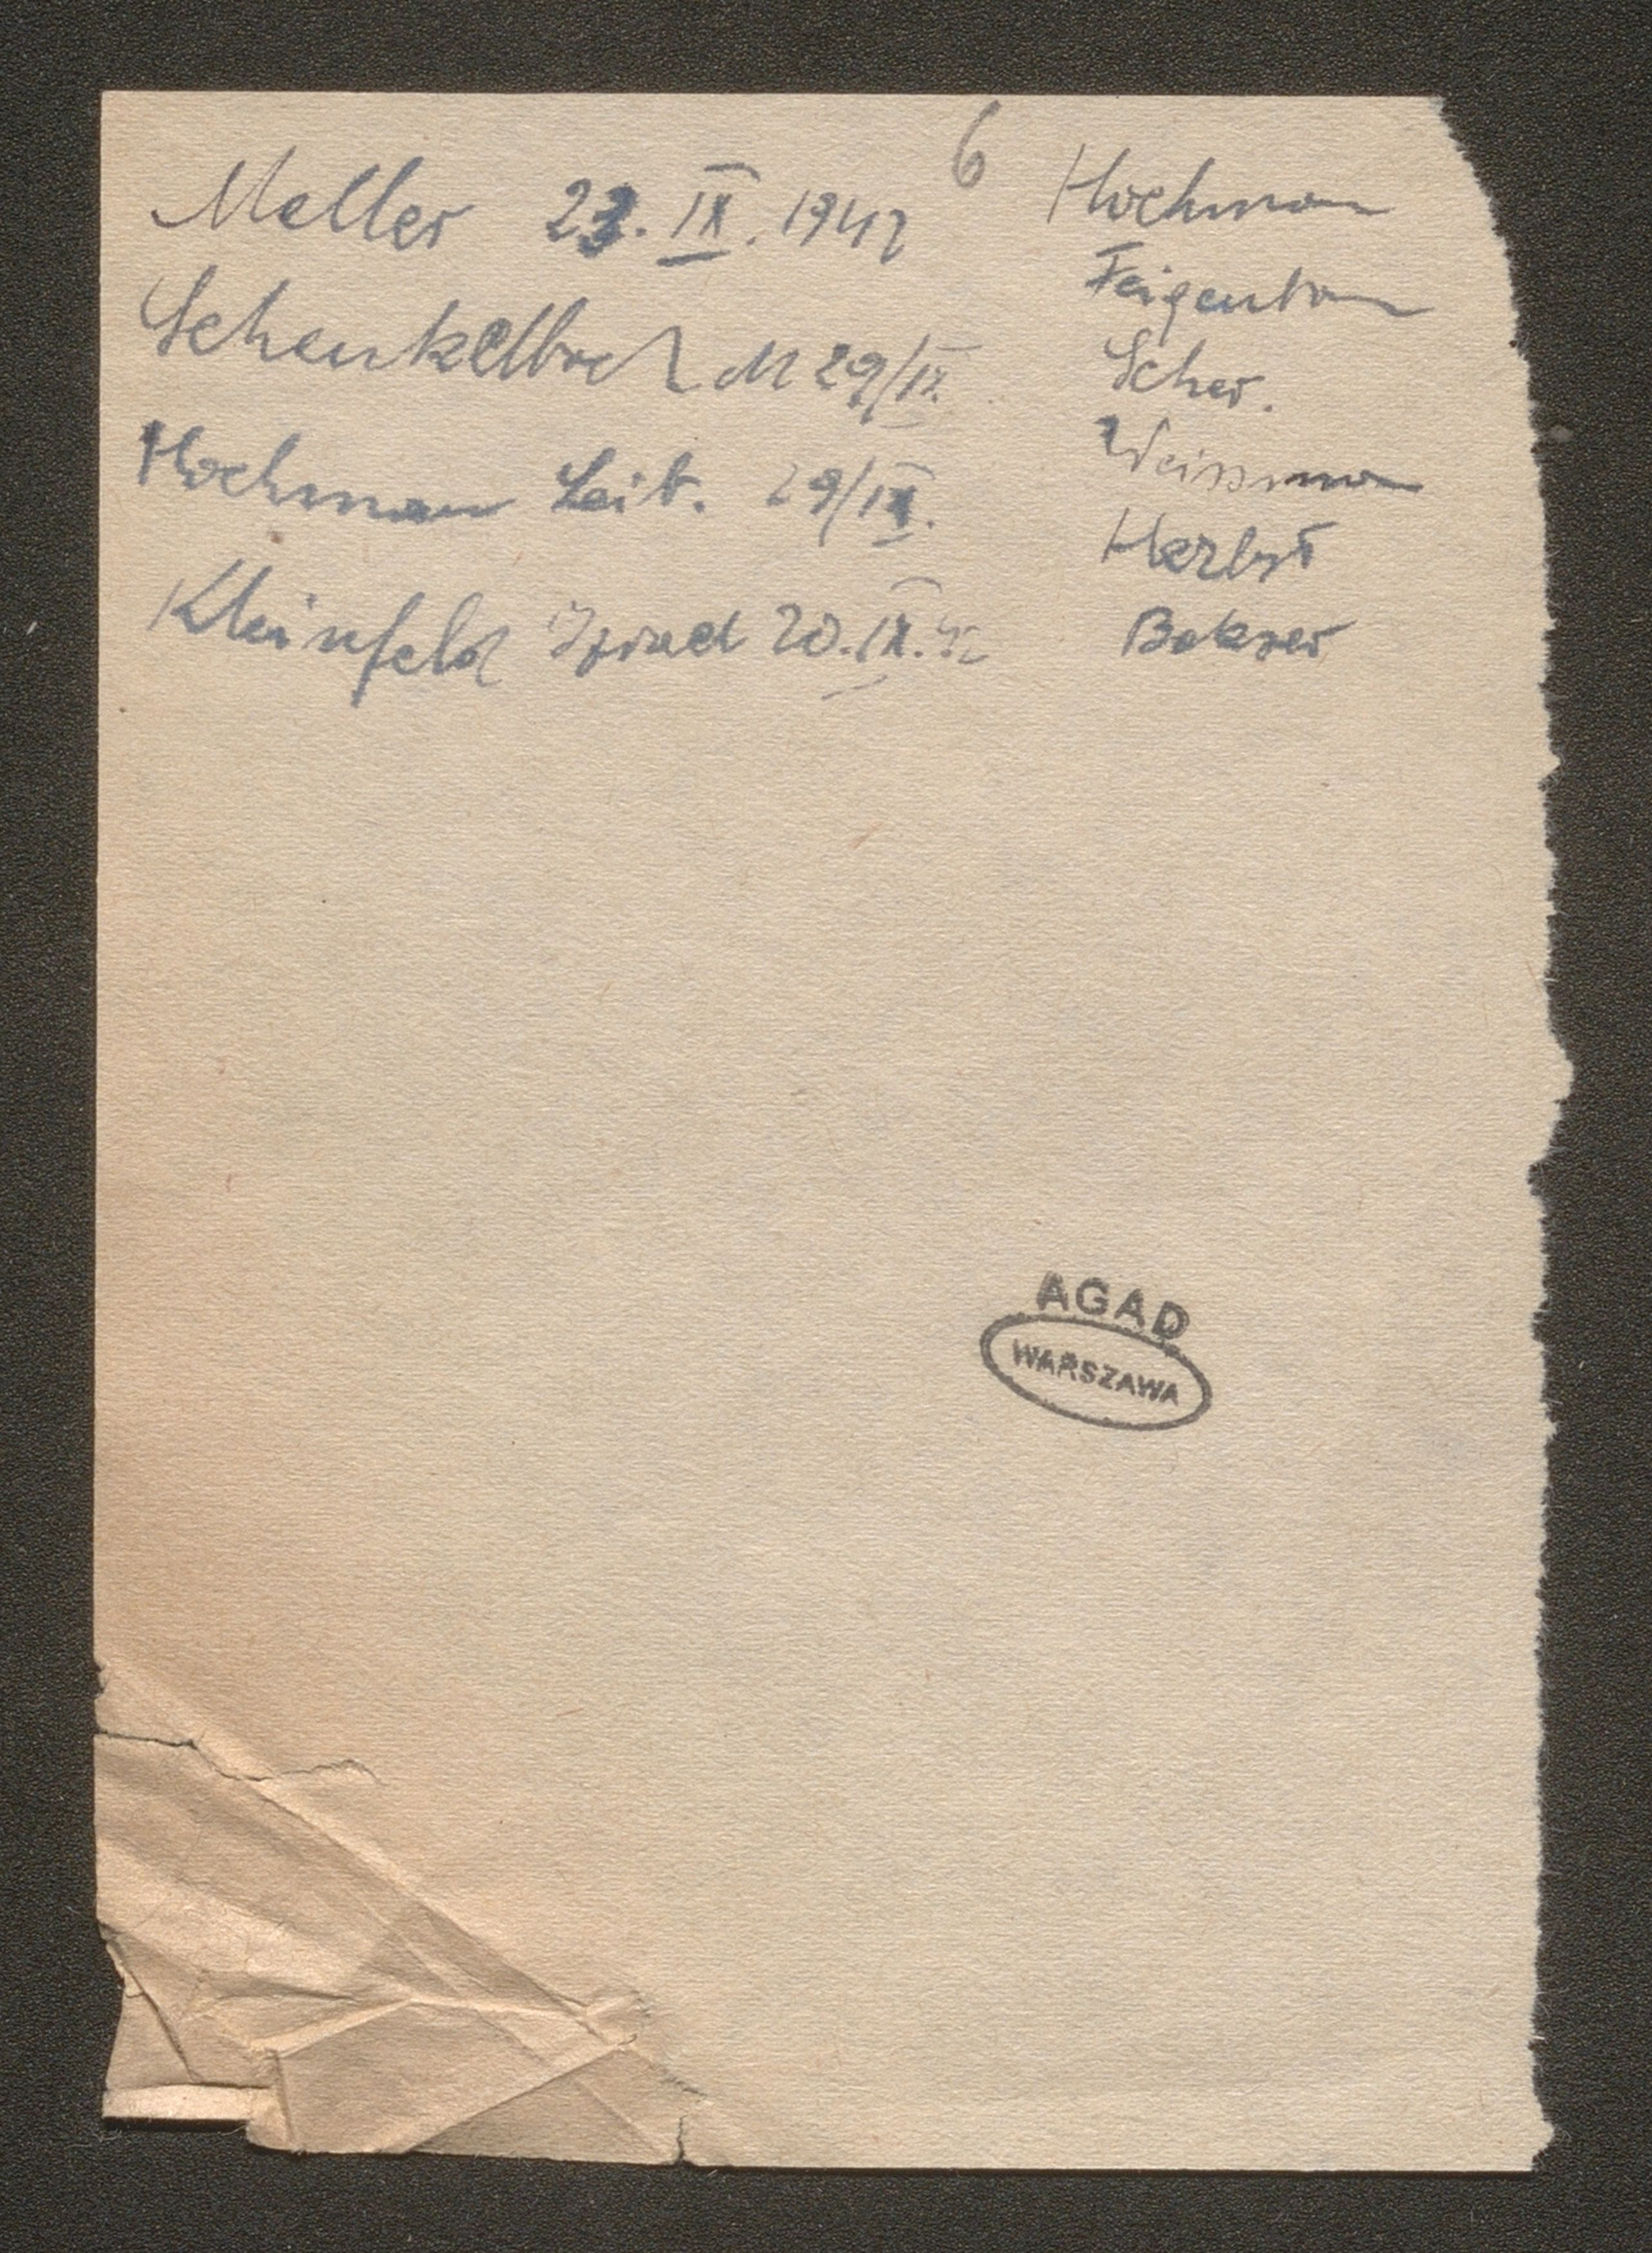 6
Meller 23. IX. 1942
Schenkelbach M 29/IX.
Hochman Leib. 29/IX.
Kleinfeld Izrael 20.IX.42
Hochman
Feigenbau
Scher.
Weissman
Herbst
Bokser
AGAD
WARSZAWA